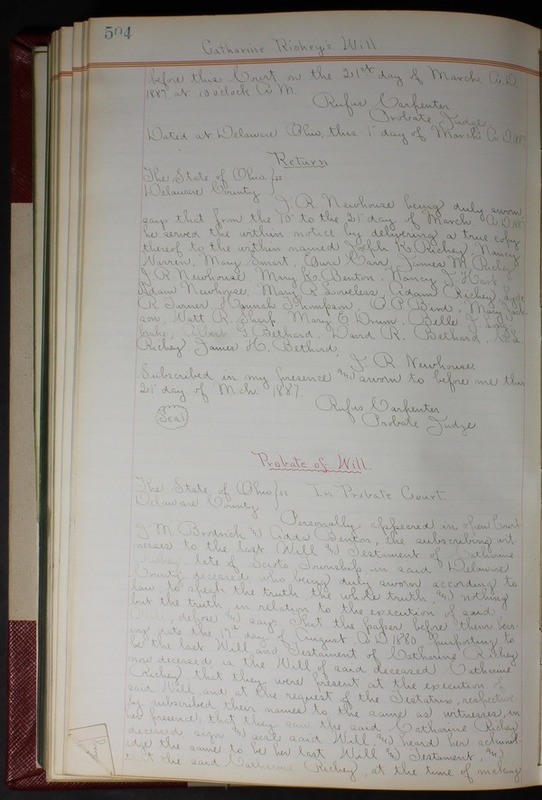 504
Catharine Richey's Will
before this Court on the 21st day of March A.D.
1887 at 10 o'clock A.M.
Rufus Carpenter
Probate Judge
Dated at Delaware Ohio, this 1 day of March A.D. 1887
Return
The State of Ohio } ss
Delaware County
J. R. Newhouse being duly sworn
says that from the 10 to the 21 day of March A.D. 1887
he served the within notice by delivering a true copy
thereof to the within named Richey, Nancy
Warren, Mary Smart, Carr, James M. Richey
J. R. Newhouse Mary E. Benton, Nancy J. Hart
Adam Newhouse, Mary R. Loveless, Adam Richey
R. Turner Hannah Thompson O. P. Bird, Mary Jack-
son, Watt R. Sharp Mary E. Drum, Belle
Albert G Bethard, David R. Bethard,
Richey James H. Bethard,
J. R. Newhouse
Subscribed in my presence & sworn to before me this
21 day of Mch 1887.
Rufus Carpenter
Probate Judge
(Seal)
Probate of Will.
The State of Ohio } ss In Probate Court.
Delaware County
Personally appeared in open Court
J. M. Brodrick & Adda Benton, the subscribing wit-
nesses to the last Will & Testament of Catharine
Richey late of Scioto Township in said Delaware
County deceased, who being duly sworn according to
law to speak the truth the whole truth, & nothing
but the truth, in relation to the execution of said
Will, depose & says: that the paper before them bear-
ing date the 17th day of August A.D. 1880 purporting to
be the last Will and Testament of Catharine Richey
now deceased, is the Will of said deceased Catharine
Richey, that they were present at the execution of
said Will, and at the request of the Testatrix, respective-
ly subscribed their names to the same as witnesses, in
her presence; that they saw the said Catharine Richey
deceased, sign & seal said Will, & heard her acknowl-
edge the same to be her last Will & Testament, &
that the said Catharine Richey, at the time of making